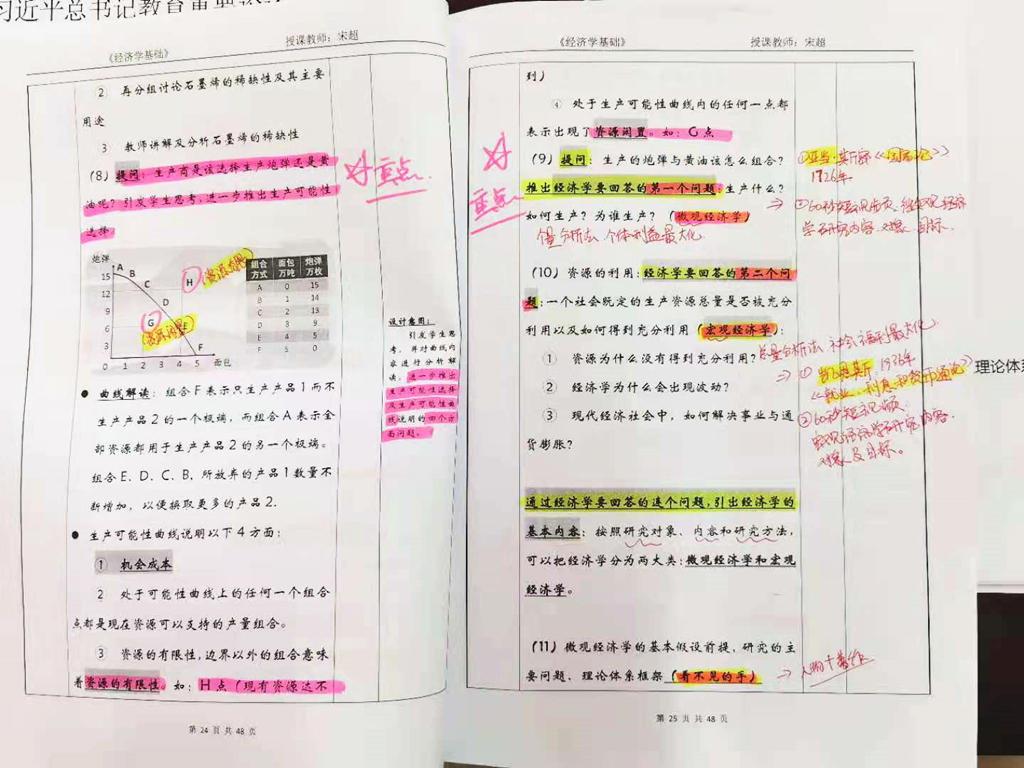 习近平总书记教育重要
《经济学基础》
授课教师：宋超
② 再分组讨论石墨烯的稀缺性及其主要
用途
3 教师讲解及分析石墨烯的稀缺性
（8）提问：生产商是该选择生产炮弹还是黄
油呢？引发学生思考，进一步推出生产可能性
选择
重点.
炮弹
15
12
9
6
3
0 1 2 3 4 5 面包
A
B
C
D
E
F
G
H
组合方式 面包万吨 炮弹万枚
A 0 15
B 1 14
C 2 12
D 3 9
E 4 5
F 5 0
设计意图：
引发学生思
考，并对曲线内
容进行分析解
读，进一步推出
生产可能性选择
及生产可能性曲
线说明的四个方
面问题。
● 曲线解读：组合F表示只生产产品1而不
生产产品2的一个极端，而组合A表示全
部资源都用于生产产品2的另一个极端。
组合E、D、C、B，所放弃的产品1数量不
断增加，以便换取更多的产品2.
● 生产可能性曲线说明以下4方面：
① 机会成本
2 处于可能性曲线上的任何一个组合
点都是现在资源可以支持的产量组合。
③ 资源的有限性，边界以外的组合意味
着资源的有限性。如：H点（现有资源达不
第 24 页 共 48 页
《经济学基础》
授课教师：宋超
到）
④ 处于生产可能性曲线内的任何一点都
表示出现了资源闲置。如：G点
（9）提问：生产的炮弹与黄油该怎么组合？
推出经济学要回答的第一个问题：生产什么？
如何生产？为谁生产？（微观经济学）
个量分析法 个体利益最大化
重点
①亚当·斯密《国富论》
1726年
②60秒短视频
学研究内容、对象、目标.
（10）资源的利用：经济学要回答的第二个问
题：一个社会既定的生产资源总量是否被充分
利用以及如何得到充分利用（宏观经济学）：
总量分析法 社会福利最大化
① 资源为什么没有得到充分利用？
② 经济学为什么会出现波动？
③ 现代经济社会中，如何解决事业与通
货膨胀？
① 凯恩斯 1936年
《就业、利息和货币通论》
②60秒短视频
宏观经济学研究内容
对象及目标。
理论体系
通过经济学要回答的连个问题，引出经济学的
基本内容：按照研究对象、内容和研究方法，
可以把经济学分为两大类：微观经济学和宏观
经济学。
（11）微观经济学的基本假设前提、研究的主
要问题、理论体系框架（看不见的手）
第 25 页 共 48 页